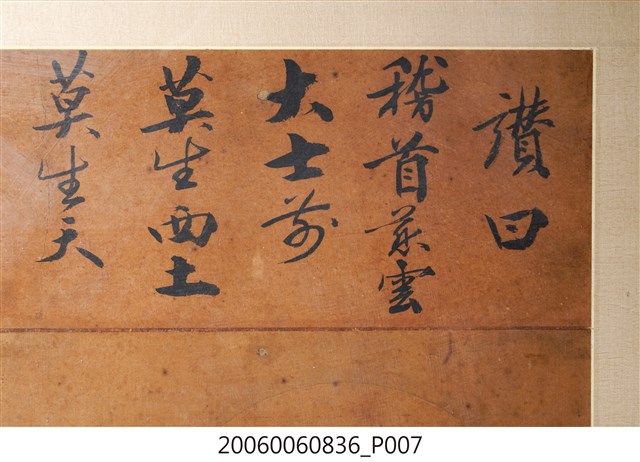 讚曰
稽首慈雲
大士前
莫生西土
莫生天
20060060836_P007